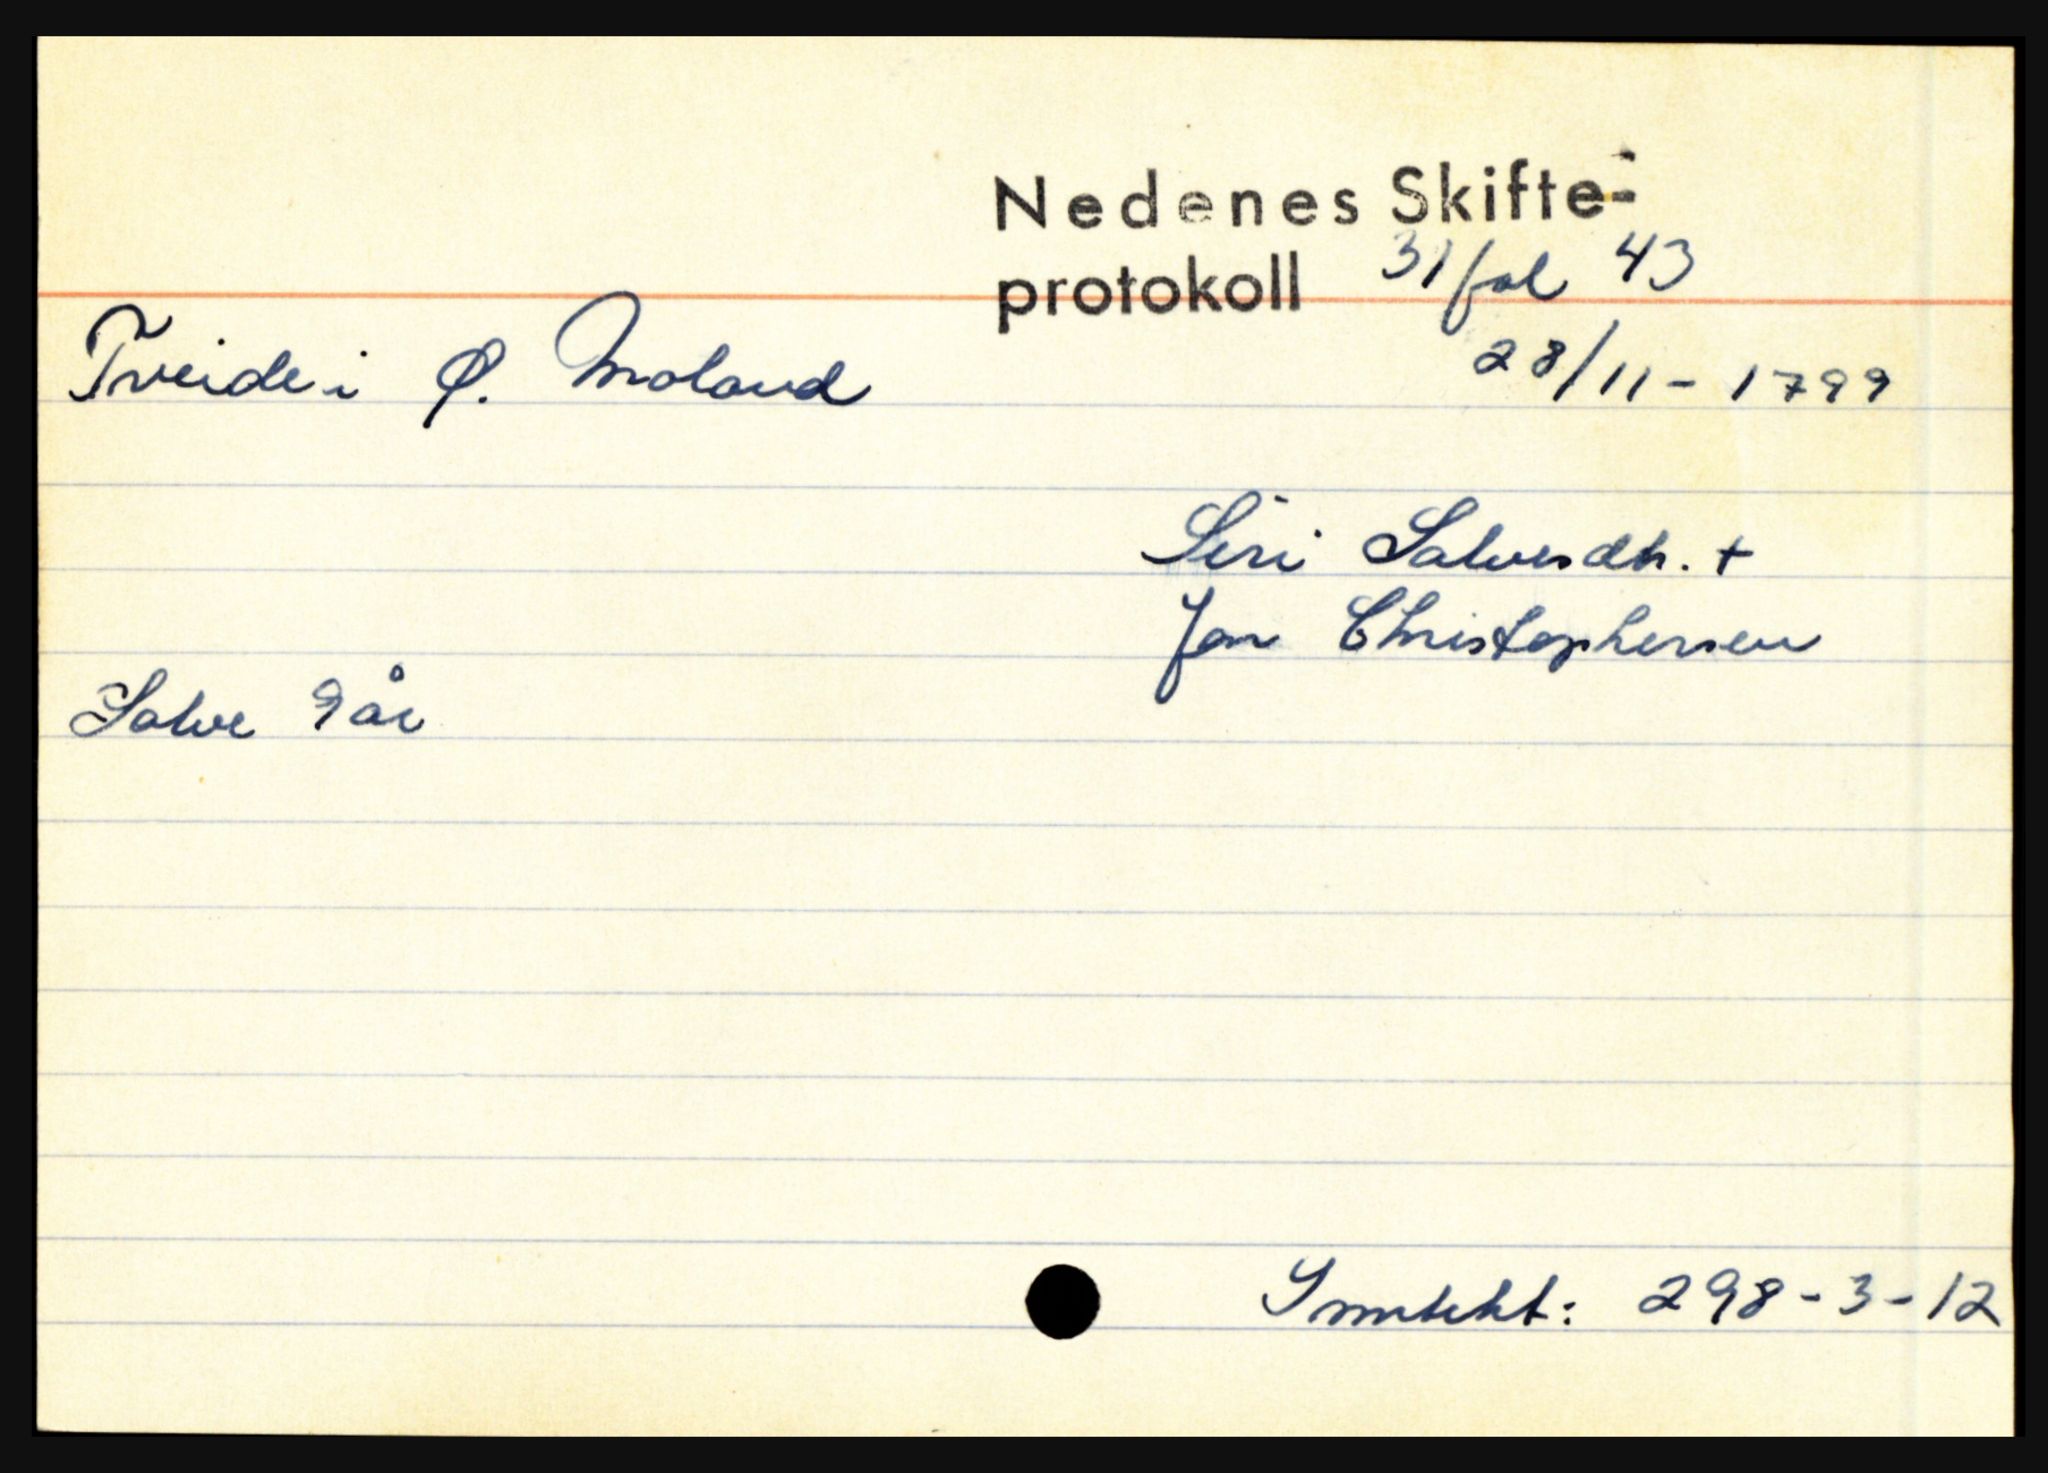 Nedenes Skifte-
protokoll 31 fol 43
Tveide i Ø. Moland 28/11-1799
Siri Salvesdtr. +
Jon Christophersen
Salve 9 år
Inntekt: 298-3-12